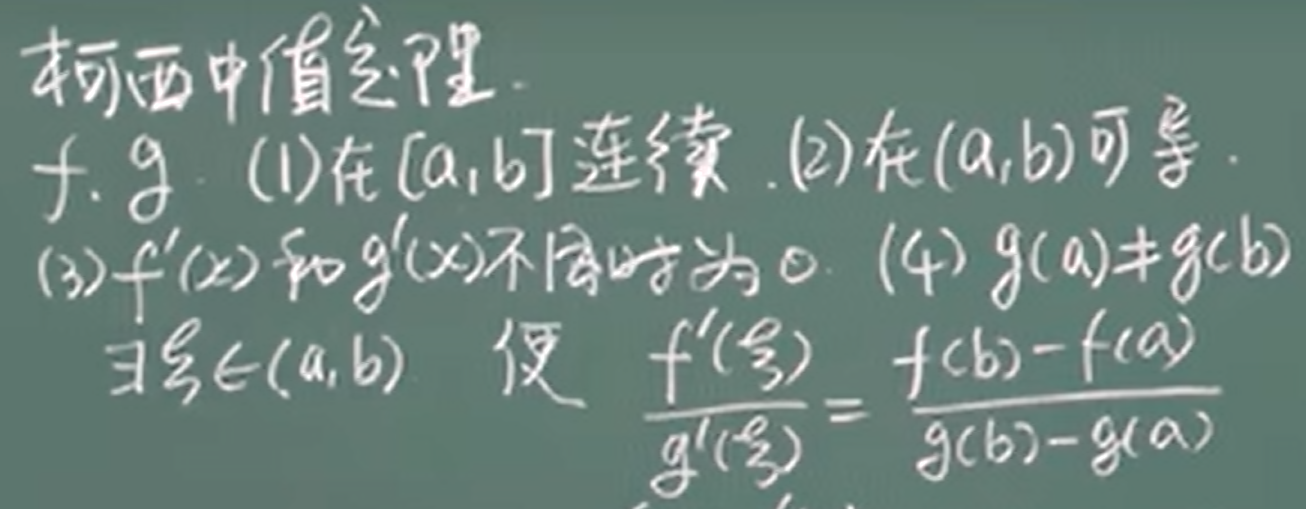 柯西中值定理.
f. g. (1)在[a,b]连续.(2)在(a,b)可导.
(3)f'(x)和g'(x)不同时为0. (4) g(a)≠g(b)
∃ξ∈(a,b) 使 f'(ξ)/g'(ξ) = (f(b)-f(a))/(g(b)-g(a))